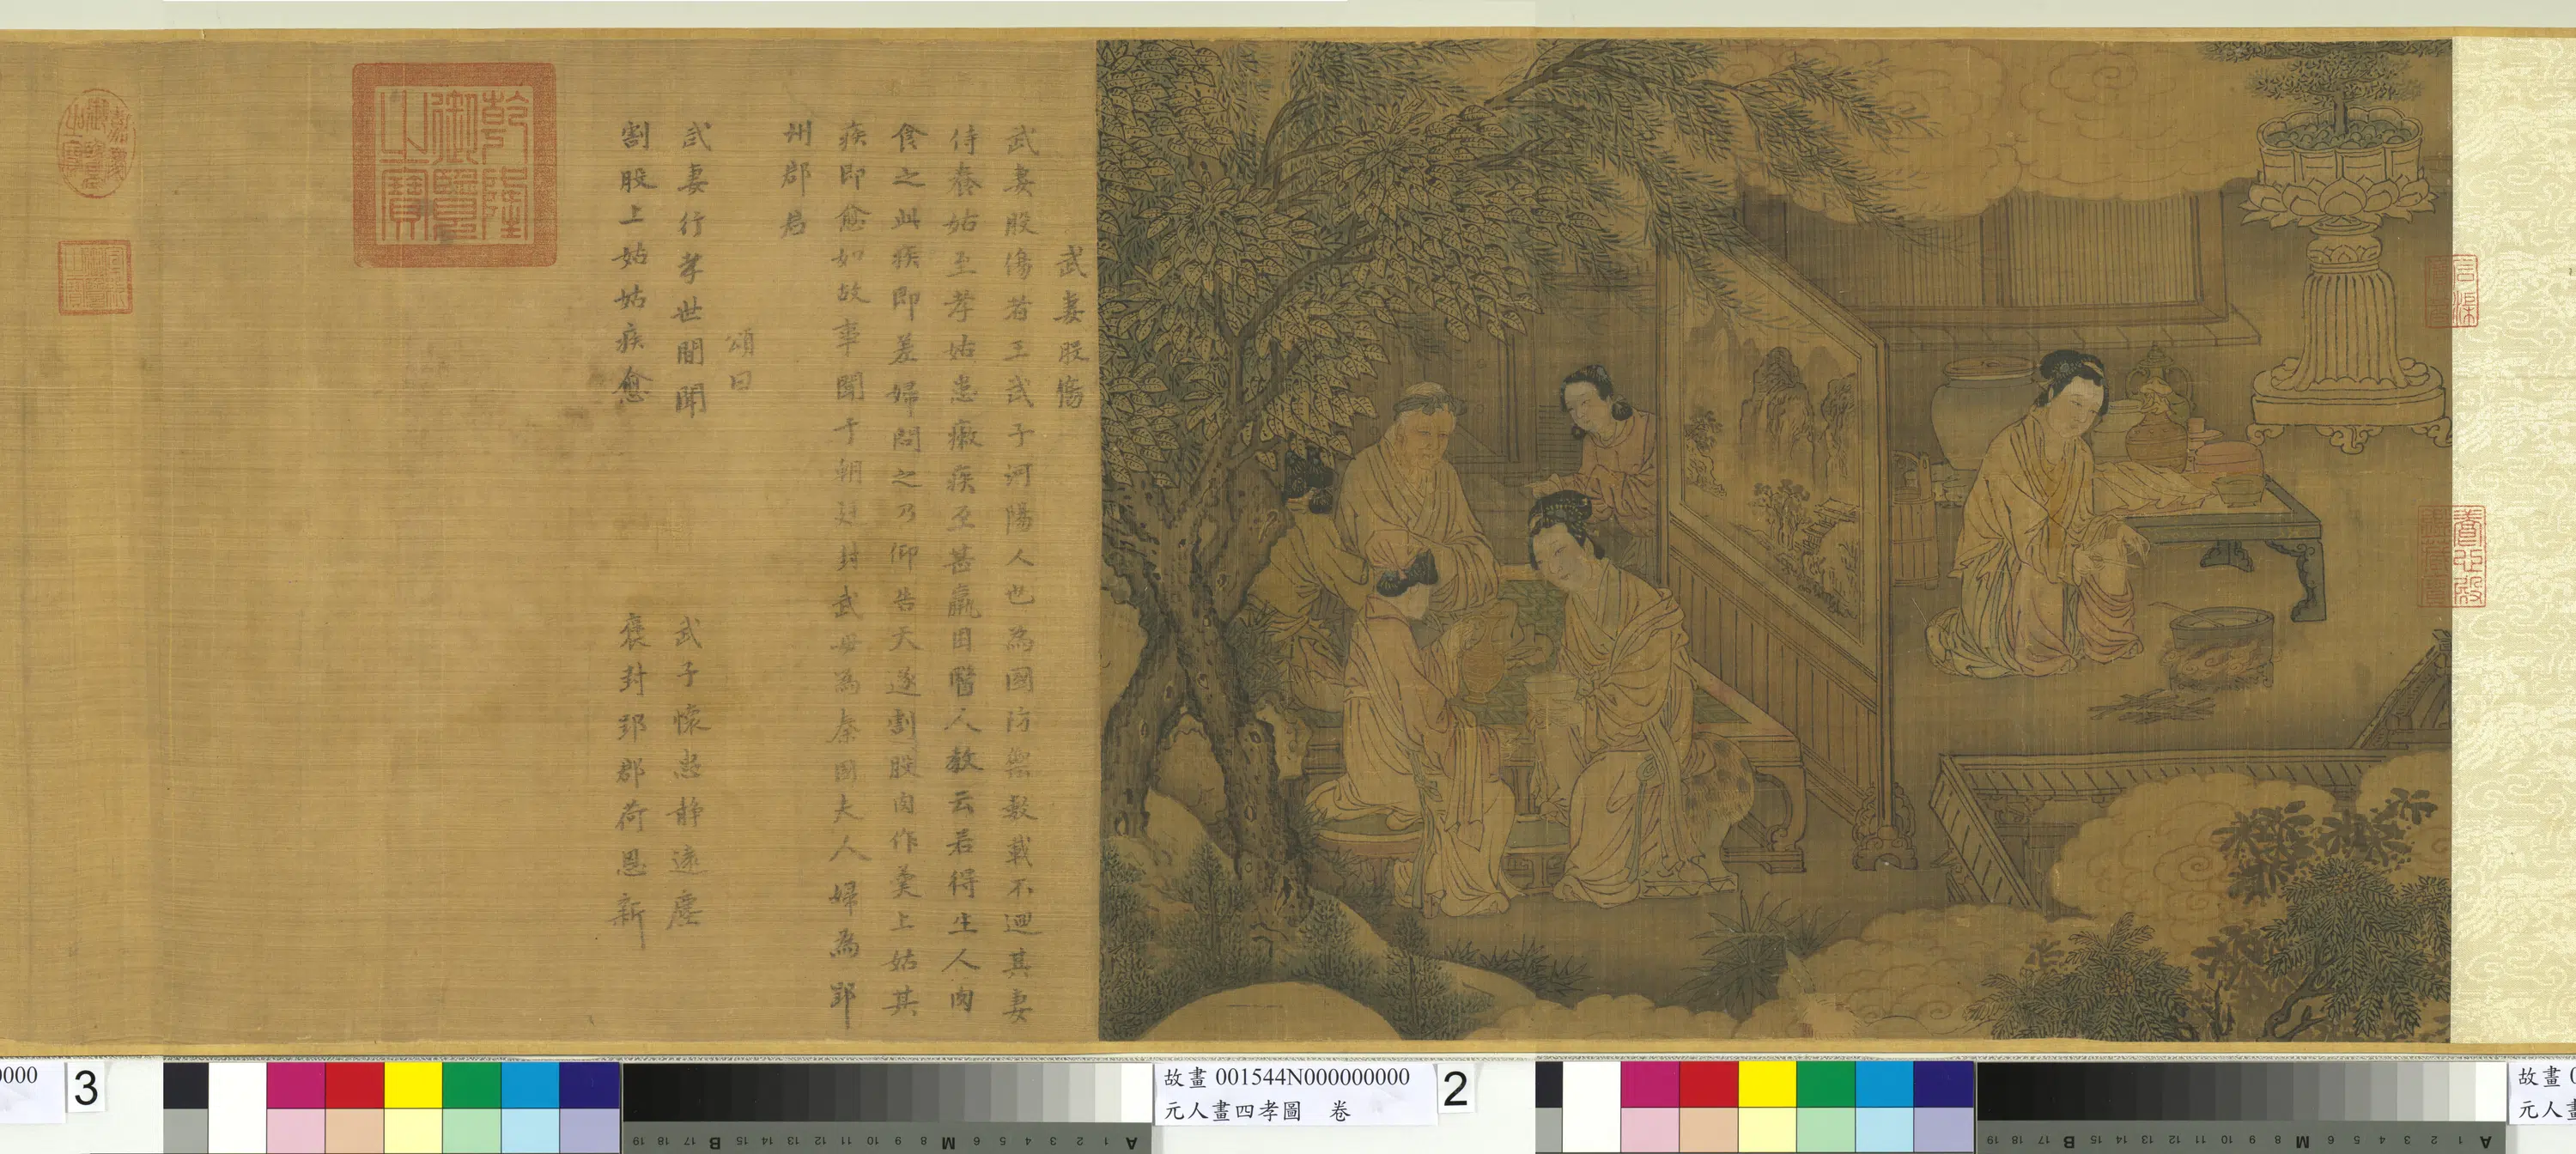 武妻股傷
武妻股傷者王武子河陽人也為國防禦數載不迴其妻
侍養姑至孝姑患癆疾至甚羸困醫人教云若得生人肉
食之此疾即差婦問之乃仰告天遂割股肉作羹上姑其
疾即愈如故事聞于朝廷封武母為秦國夫人婦為郢
州郡君
頌曰
武妻行孝世間聞
武子懷忠靜遠塵
割股上姑姑疾愈
褒封郢郡荷恩新
乾隆御覽之寶
嘉慶御覽之寶
宣統御覽之寶
養心殿
0000
3
故畫 001544N000000000
元人畫四孝圖 卷
2
故畫
元人
19 18 17 B 15 14 13 12 11 10 9 8 M 6 5 4 3 2 1 A
19 18 17 B 15 14 13 12 11 10 9 8 M 6 5 4 3 2 1 A